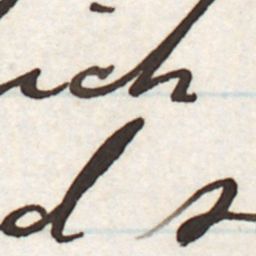 ich
d s